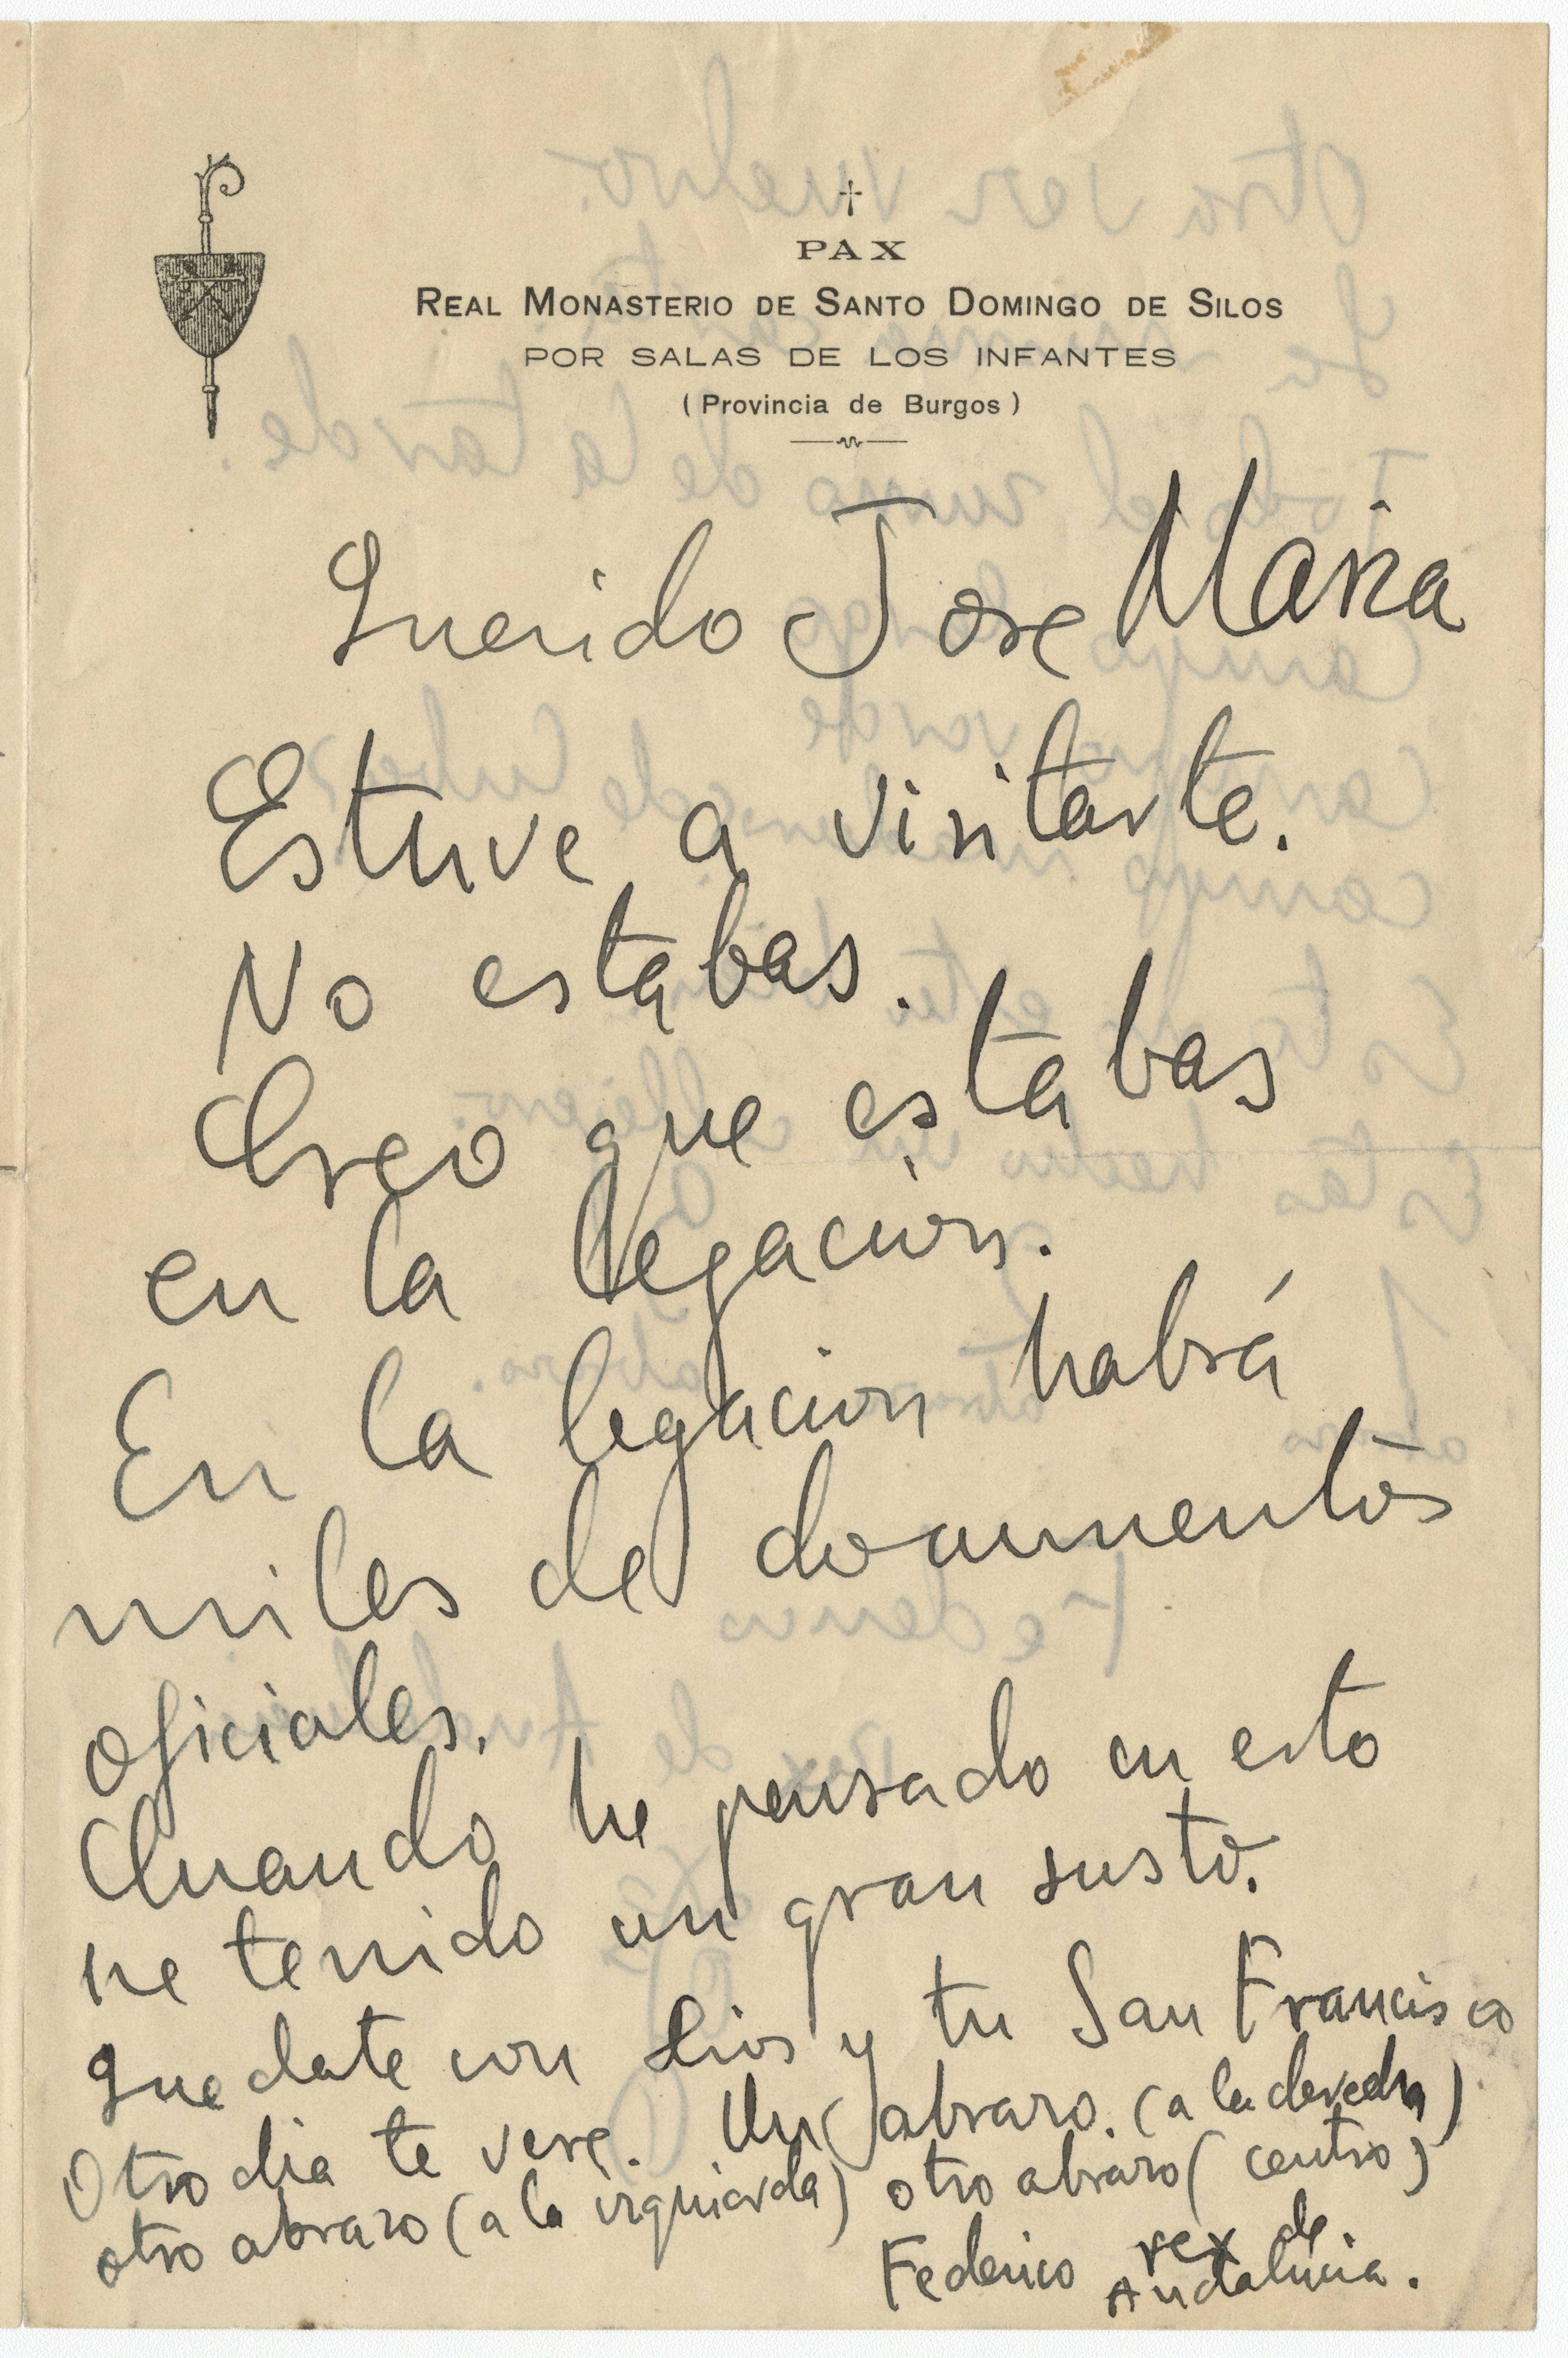 †
PAX
REAL MONASTERIO DE SANTO DOMINGO DE SILOS
POR SALAS DE LOS INFANTES
(Provincia de Burgos)
Querido Jose Maria
Estuve a visitarte.
No estabas.
Creo que estabas
en la legación.
En la legacion habrá
miles de documentos
oficiales.
Cuando he pensado en esto
he tenido un gran susto.
quedate con Dios y tu San Francisco
Otro dia te vere. Un abrazo. (a la derecha)
otro abrazo (a la izquierda) otro abrazo (centro)
Federico rex de
Andalucia.